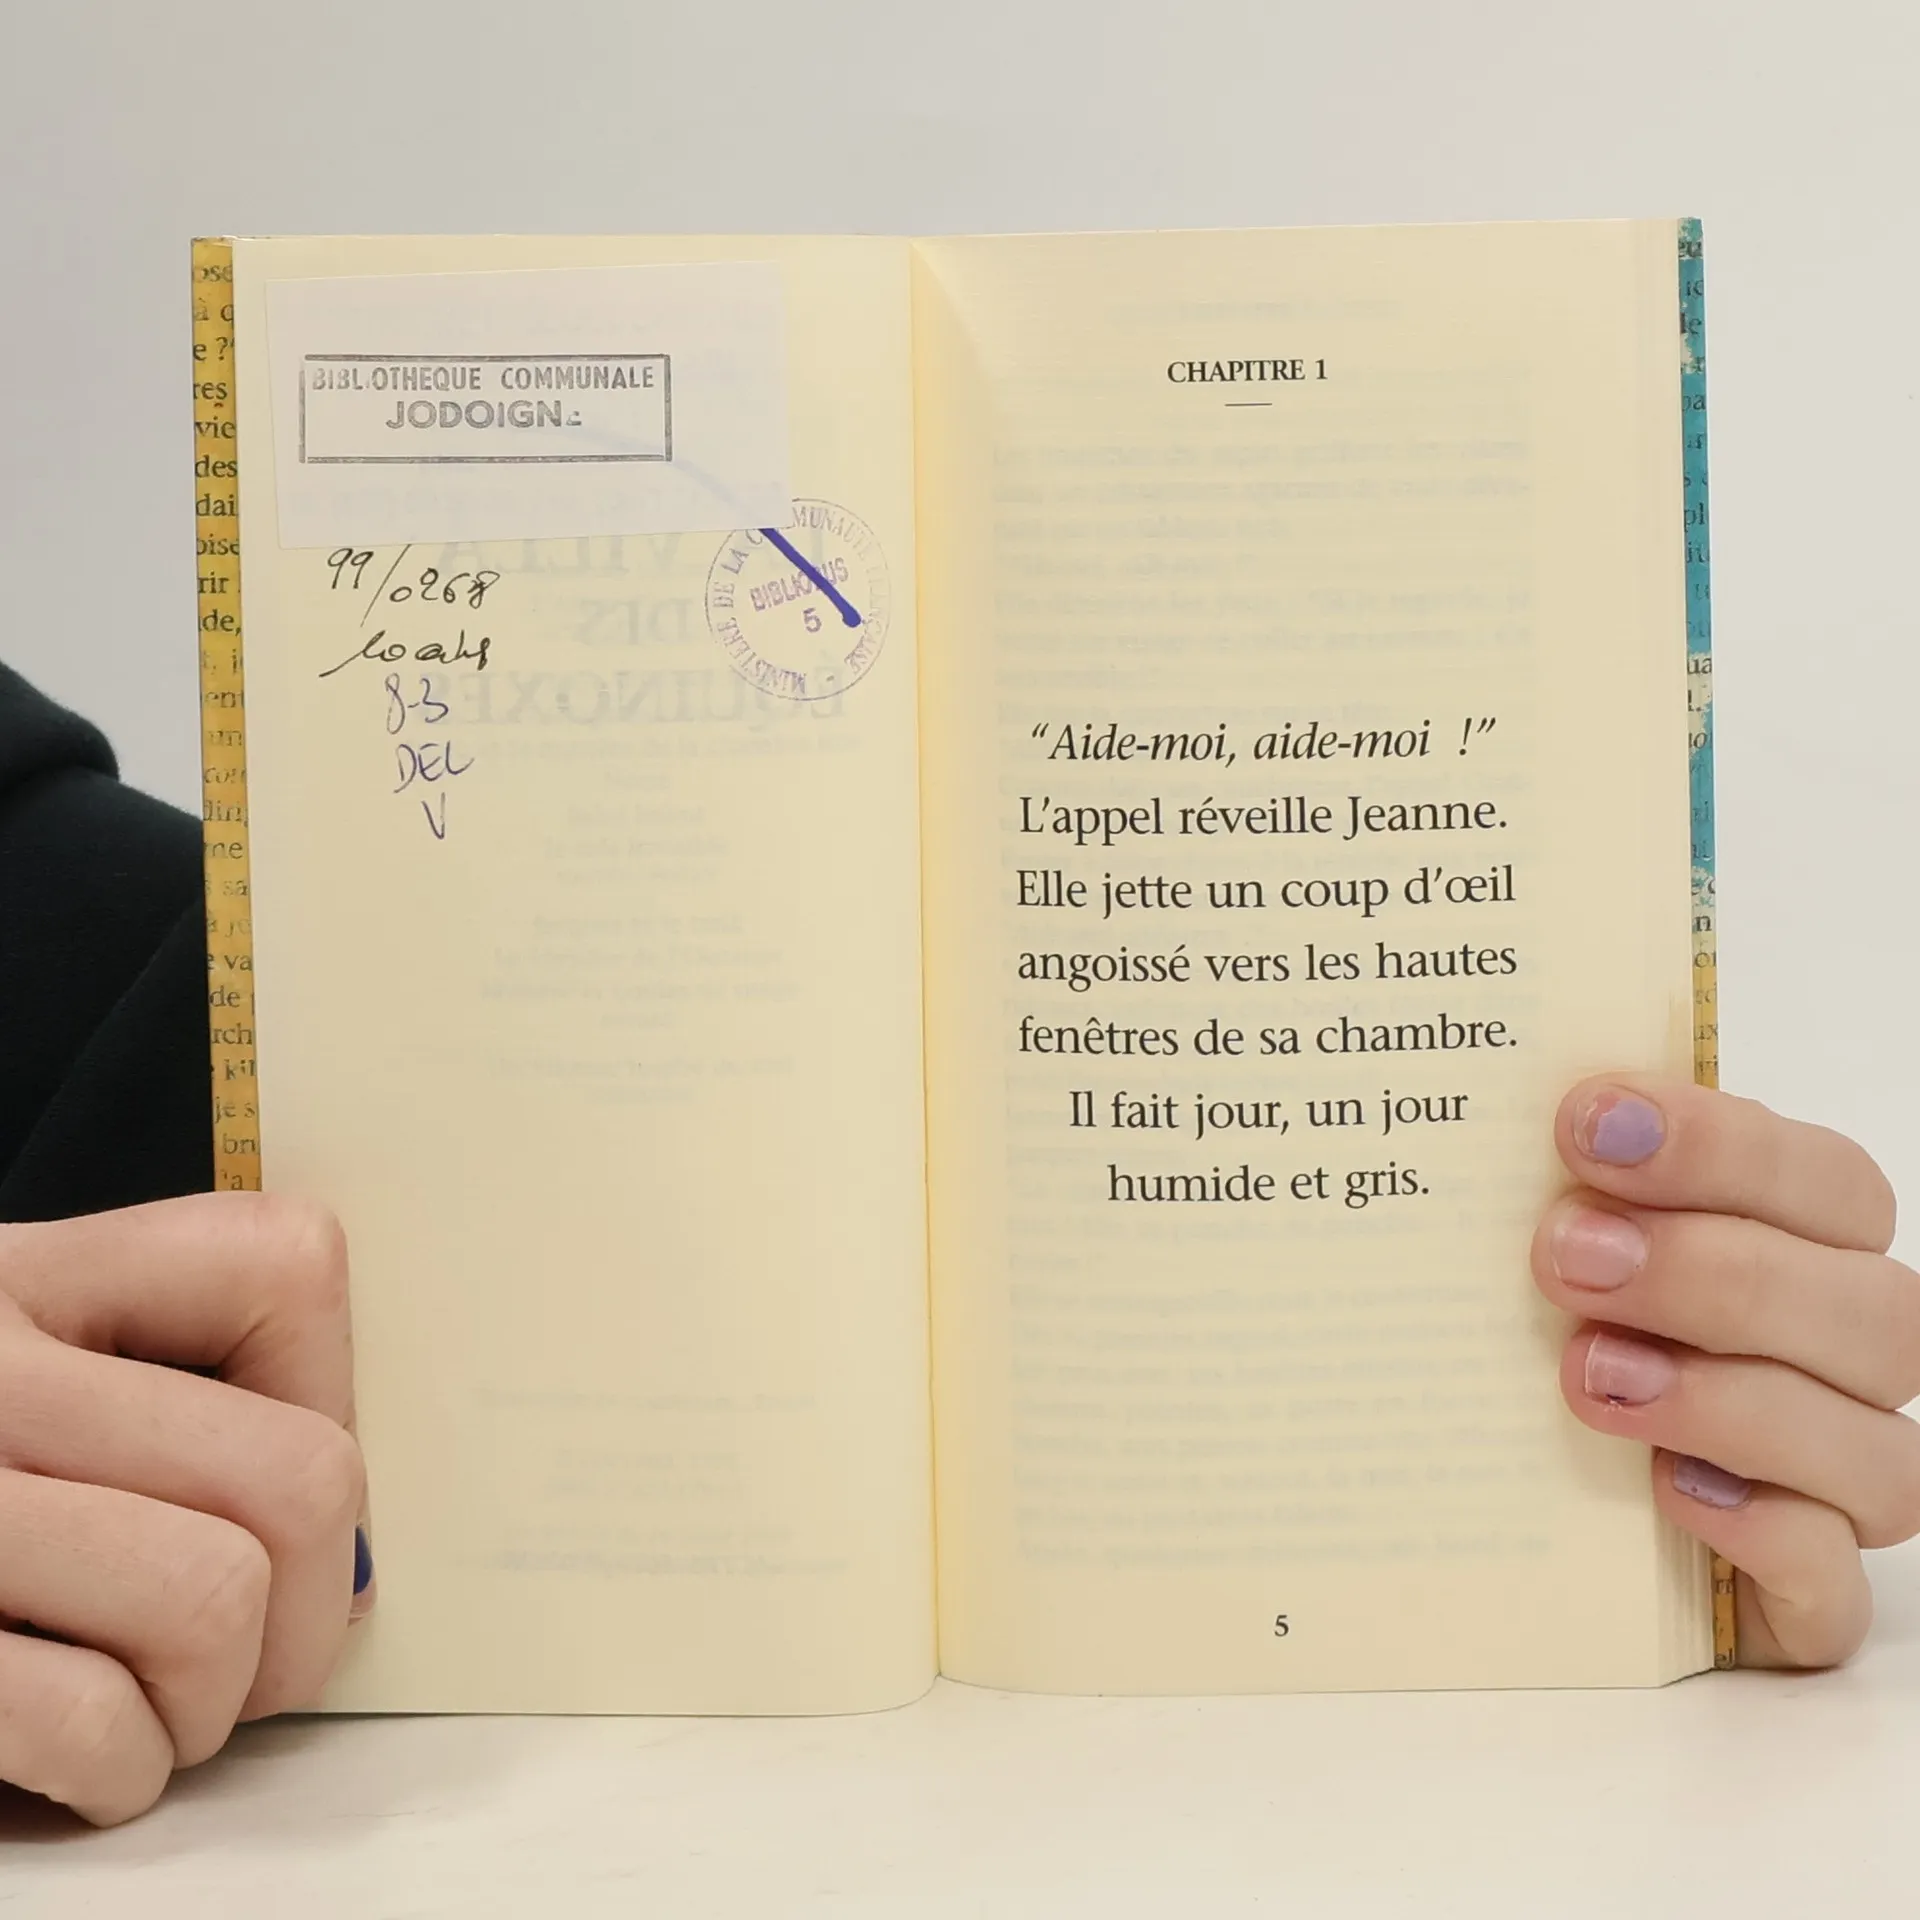 BIBLIOTHEQUE COMMUNALE
JODOIGNE
99/0268
8-3
DEL
V
MINISTERE DE LA COMMUNAUTE FRANÇAISE
BIBLIOBUS
5
CHAPITRE 1
“Aide-moi, aide-moi !”
L’appel réveille Jeanne.
Elle jette un coup d’œil
angoissé vers les hautes
fenêtres de sa chambre.
Il fait jour, un jour
humide et gris.
5